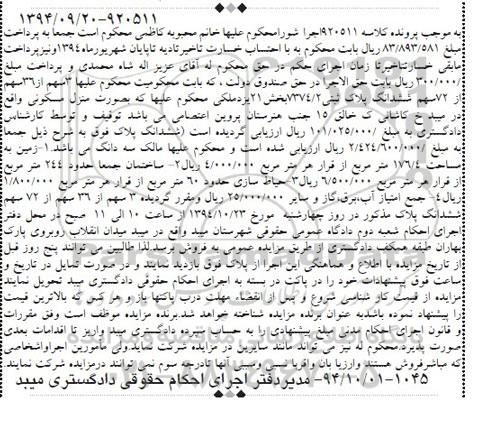 ۱۳۹۴/۰۹/۲۰-۹۲۰۵۱۱
به موجب پرونده کلاسه ۹۲۰۵۱۱اجرا شورامحکوم علیها خانم محبوبه کاظمی محکوم است جمعا به پرداخت
مبلغ ۸۳/۸۹۳/۵۸۱ ریال بابت محکوم به با احتساب خسارت تاخیرتادیه تاپایان شهریورماه۱۳۹۴ونیزپرداخت
مابقی خسارتتاخیرتا زمان اجرای حکم در حق محکوم له آقای عزیز اله شاه محمدی و پرداخت مبلغ
۳۰۰/۰۰۰/ریال بابت حق الاجرا در حق صندوق دولت ، که بابت محکومیت محکوم علیها ۳سهم از۳۶سهم
از ۷۲سهم ششدانگ پلاک ثبتی۷۳۷۴/۲بخش ۲۱یزدملکی محکوم علیها که بصورت منزل مسکونی واقع
در میبد خ کاشانی ک خالق ۱۵ جنب هنرستان پروین اعتصامی می باشد توقیف و توسط کارشناسی
دادگستری به مبلغ /۱۰۱/۰۲۵/۰۰۰ ریال ارزیابی گردیده است (ششدانگ پلاک فوق به شرح ذیل جمعا
به مبلغ /۲/۴۲۴/۶۰۰/۰۰۰ ریال ارزیابی شده است و محکوم علیها مالک سه دانگ می باشد.۱-زمین به
مساحت ۱۷۶/۴ متر مربع از قرار هر متر مربع ۴/۰۰۰/۰۰۰ ریال۲- ساختمان جمعا حدود ۲۴۴ متر مربع
از قرار هر متر مربع ۶/۵۰۰/۰۰۰ ریال۳-حیاط سازی حدود ۶۰ متر مربع از قرار هر متر مربع ۱/۸۰۰/۰۰۰
ریال۴- جمع امتیاز آب،برق،گاز و سایر ۲۵/۰۰۰/۰۰۰ ریال ومقرر گردیده ۳ سهم از ۳۶ سهم از ۷۲ سهم
ششدانگ پلاک مذکور در روز چهارشنبه مورخ ۱۳۹۴/۱۰/۲۳ از ساعت ۱۰ الی ۱۱ صبح در محل دفتر
اجرای احکام شعبه دوم دادگاه عمومی حقوقی شهرستان میبد واقع در میبد میدان انقلاب روبروی پارک
بهاران طبقه همکف دادگستری از طریق مزایده عمومی به فروش برسد.لذا طالبین می توانند پنج روز قبل
از تاریخ مزایده با اطلاع و هماهنگی این اجرا از پلاک فوق بازدید نمایند و در صورت تمایل در تاریخ و
ساعت فوق پیشنهادات خود را در پاکت در بسته به اجرای احکام حقوقی دادگستری میبد تحویل نمایند
مزایده از قیمت کار شناسی شروع و پس از انقضاء مهلت درب پاکتها باز و هر کس که بالاترین قیمت
را پیشنهاد نموده باشدبه عنوان برنده مزایده شناخته خواهد شد.برنده مزایده موظف است وفق مقررات
و قانون اجرای احکام مدنی مبلغ پیشنهادی را به حساب سپرده دادگستری میبد واریز تا اقدامات بعدی
صورت پذیرد.محکوم له نیز می تواند مانند سایرین در مزایده شرکت نماید.ولی مأمورین اجراواشخاصی
که مباشرفروش هستند وارزیا بان واقربا نسبی وسببی آنها تادرجه سوم نمی توانند درمزایده شرکت نمایند.
۹۴/۱۰/۰۱-۱۰۴۵- مدیردفتر اجرای احکام حقوقی دادگستری میبد